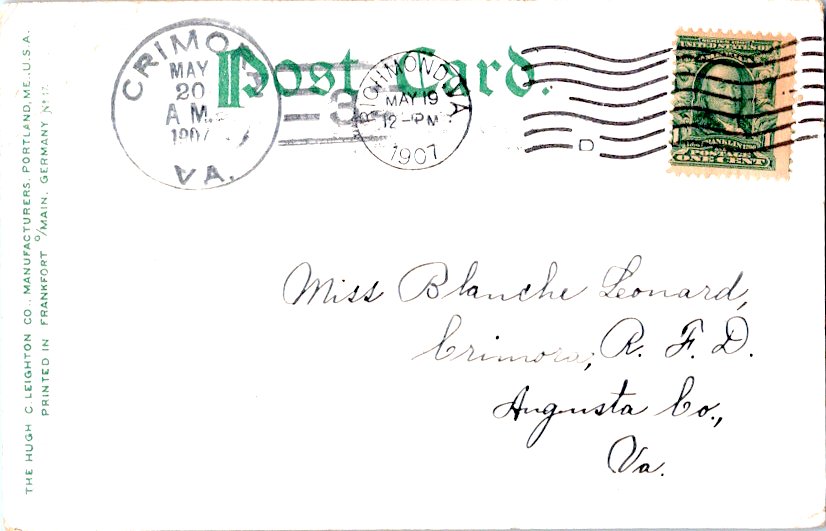 THE HUGH C. LEIGHTON CO., MANUFACTURERS, PORTLAND, ME., U.S.A.
PRINTED IN FRANKFORT o/MAIN, GERMANY
Post Card.
CRIMORA
MAY
20
A M.
1907
VA.
3
RICHMOND, VA
MAY 19
12-PM
1907
D
UNITED STATES OF
FRANKLIN
ONE CENT
Miss Blanche Leonard,
Crimora, R. F. D.
Augusta Co.,
Va.